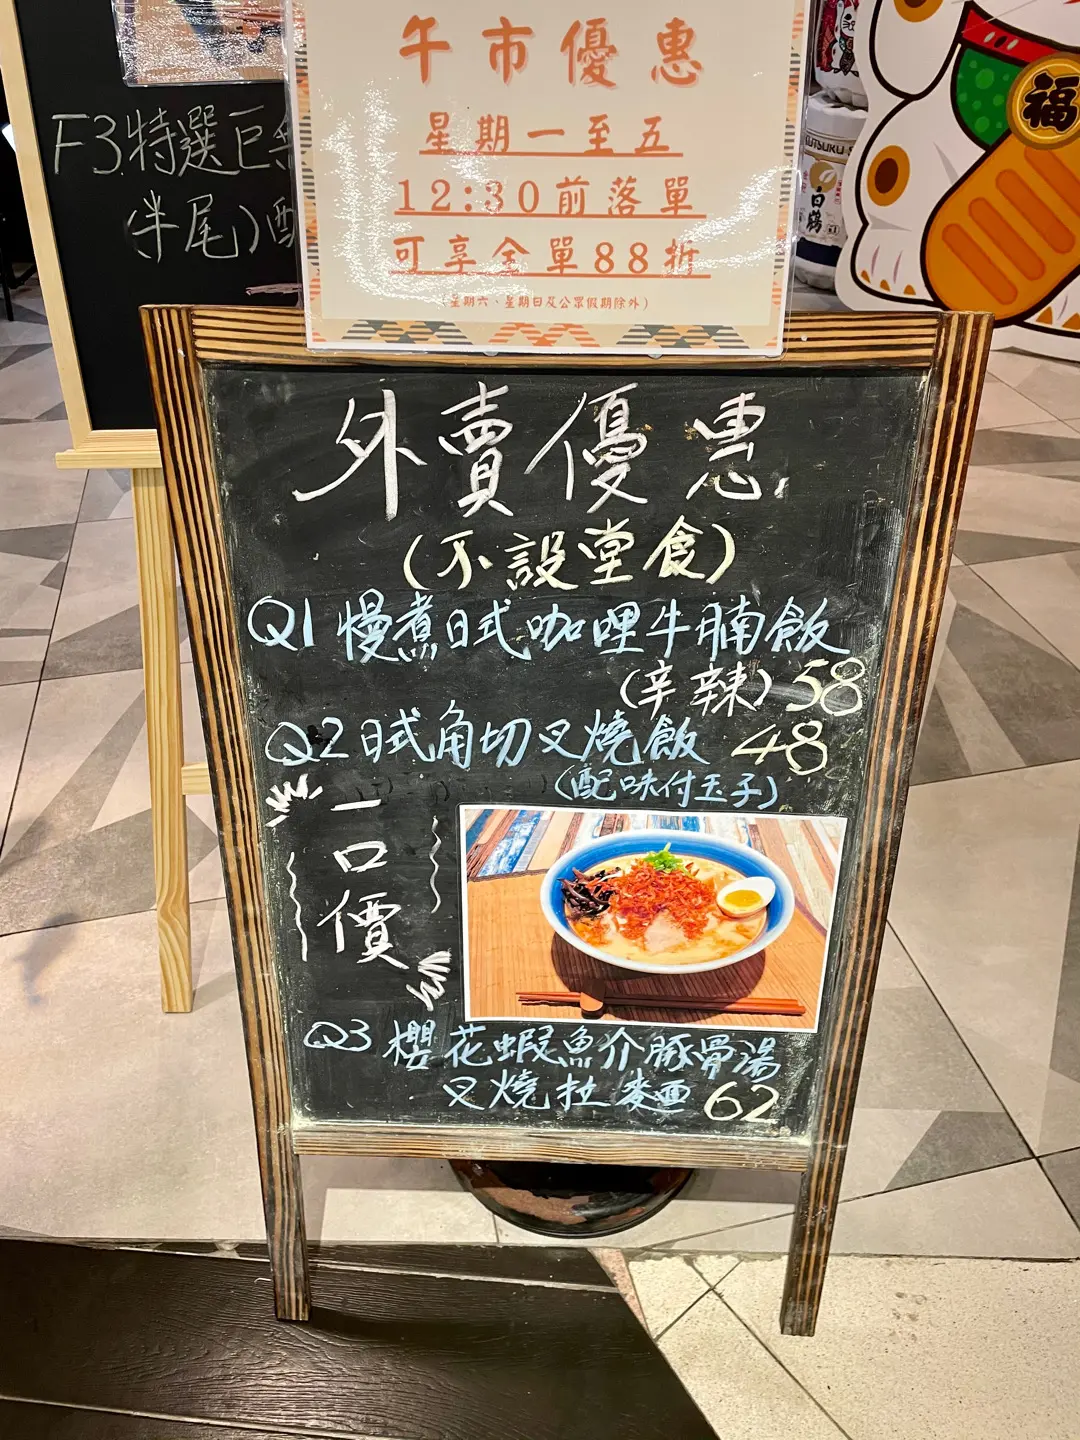 午市優惠
星期一至五
12:30前落單
可享全單88折
(星期六、星期日及公眾假期除外)
F3.特選巨
(半尾)配
福
白鶴
外賣優惠
(不設堂食)
Q1 慢煮日式咖哩牛腩飯
(辛辣) 58
Q2 日式角切叉燒飯 48
(配味付玉子)
一口價
Q3 櫻花蝦魚介豚骨湯
叉燒拉麵 62